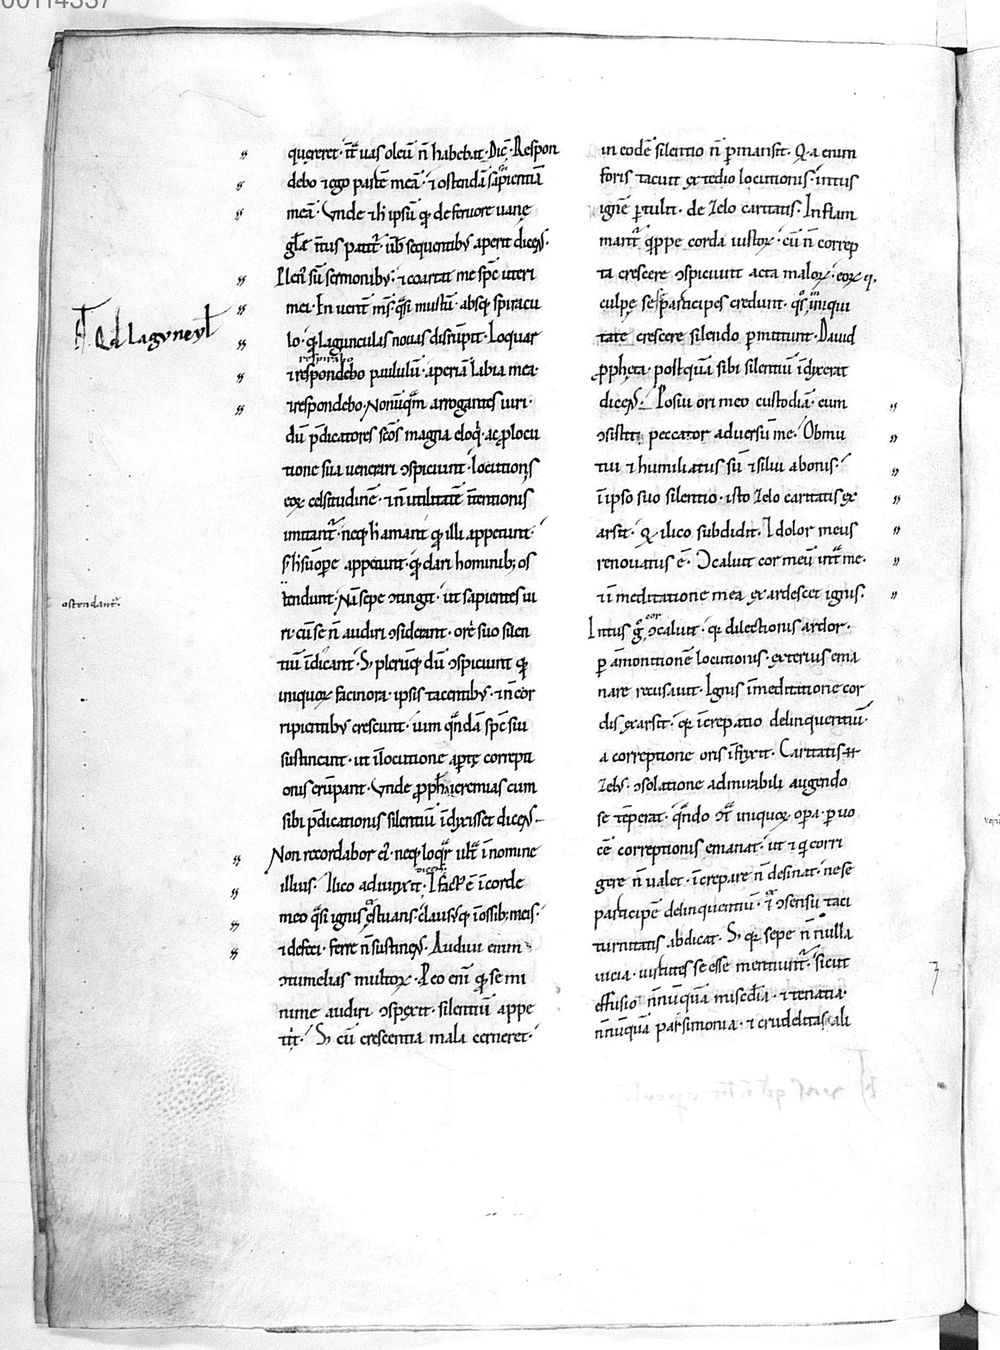 00114337
quęreret · tam̄ uas oleū n̄ habebat · Dic̄ · Respon
debo ⁊ ego partē meā · ⁊ ostendā sapientiā
meā · Vnde ⁊ h̄ ipsū qđ de feruore uanę
glę intus patit̄ · ub̄ sequentibꝰ aperit dicēs ·
Plen᷒ sū sermonibꝰ · ⁊ coartat me sp̄c uteri
mei · En uent̄ ms̄ q̄si mustū · absqꝫ spiracu
lo · qđ lagunculas nouas disrūpit · Loquar
⁊ respondebo paululū · aperiā labia mea ·
⁊ respondebo · Nonūq̄m arrogantes uiri ·
dū p̄dicatores sc̄os magna eloq̇ · ac ꝓlocu
tione sua uenerari ɔspiciunt · locutionis
eoꝝ celsitudinē · ⁊ n̄ utilitatē int̄entionis
imitant̄ · neqꝫ h̄ amant qđ illi appetunt ·
s; h̄ sūope appetunt · qđ clari hominibꝫ os
tendunt · Nā sepe ɔtingit · ut sapientes ui
ri · cū se n̄ audiri ɔsiderant · ore suo silen
tiū īdicant · S; plerūqꝫ dū ɔspiciunt qđ
iniquoꝝ facinora · ipsis tacentibꝰ · ⁊ n̄ cor
ripientibꝰ crescunt · uim quādā sp̄c sui
sustineunt · ut ī locutione aptę correpti
onis erūpant · Vnde ꝓpha ieremias cum
sibi p̄dicationis silentiū īdixisset dicens ·
Non recordabor ei᷒ · neqꝫ loqr̄ ult̄ ī nomine
illius · Ilico adiunxit · Et factꝰ ē ī corde
meo q̄si ignis ęstuans · clausꝰqꝫ ī ossibꝫ meis ·
⁊ defeci · ferre n̄ sustinēs · Audiui enim
ɔtumelias multoꝝ · P eo enī qđ se mi
nime audiri ɔspexit · silentiū appe
tiit · S; cū crescentia mala cerneret ·
ostendant̄ ·
in eodē silentio n̄ p̄mansit · Q a enim
foris tacuit ex tedio locutionis · intus
ignē ꝑtulit · de zelo caritatis · Inflam
mant̄ q̄ppe corda iustoꝝ · cū n̄ correp
ta crescere ɔspiciunt acta maloꝝ · eoꝝ q.
culpę se participes credunt · q̊s ī iniqui
tate crescere silendo p̄mittunt · Dauid
ꝓpheta · postquā sibi silentiū īdixerat
dicēs · Posui ori meo custodiā · cum
ɔsistit peccator aduersū me · Obmu
tui ⁊ humiliatus sū ⁊ silui a bonis ·
ī ipso suo silentio · isto zelo caritatis ex
arsit · Q ilico subdidit · Et dolor meus
renouatus ē · Ɔcaluit cor meū int̄ me ·
⁊ ī meditatione mea exardescet ignis ·
Intus g̊ cor ɔcaluit · qꝫ dilectionis ardor ·
p āmonitionē locutionis · exterius ema
nare recusauit · Ignis ī meditatione cor
dis exarsit · qꝫ īcrepatio delinquentiū ·
a correptione oris īfrixit · Caritatis ÷
zelꝰ · ɔsolatione admirabili augendo
se tēperat · quādo ɔt̄ iniquoꝝ opa · p uo
cē correptionis emanat · ut ⁊ q̇ corri
gere n̄ ualet · īcrepare n̄ desinat · ne se
participē delinquentiū · ɔsensu taci
turnitatis abdicat · S; qꝫ sepe n̄nulla
uicia · uirtutes se esse mentiunt̄ · sicut
effusio n̄nūquā misc̄dia · ⁊ tenatia
n̄nūquā parsimonia · ⁊ crudelitas · ali